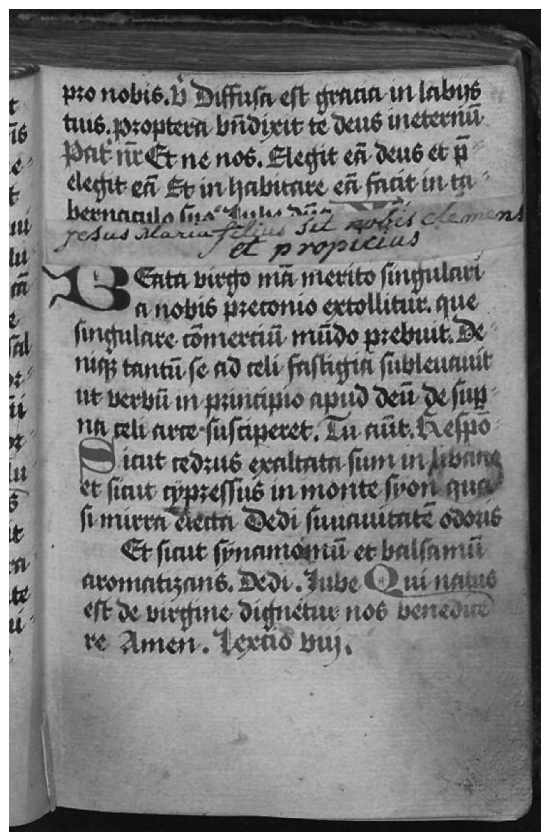 pro nobis. V̊ Diffusa est gracia in labijs
tius. propterea bn̄dixit te deus ineternū
Pat̄ nr̄ Et ne nos. Elegit eā deus et p̄
elegit eā Et in habitare eā facit in ta
bernaculo suo Jube
Jesus Maria filius sit nobis clemens
et propicius
Beata virgo mā merito singulari
a nobis preconio extollitur. que
singulare cōmerciū mūdo prebuit. De
niqꝫ tantū se ad celi fastigia subleuauit
ut verbū in principio apud deū de sup̄
na celi arce susciperet. Tu aūt. Respō
Sicut cedrus exaltata sum in libano
et sicut cypressus in monte syon qua
si mirra electa Dedi suuauitatē odoris
Et sicut synamomū et balsamū
aromatizans. Dedi. Jube Qui natus
est de virgine dignetur nos benedice
re Amen. Lectio viij.